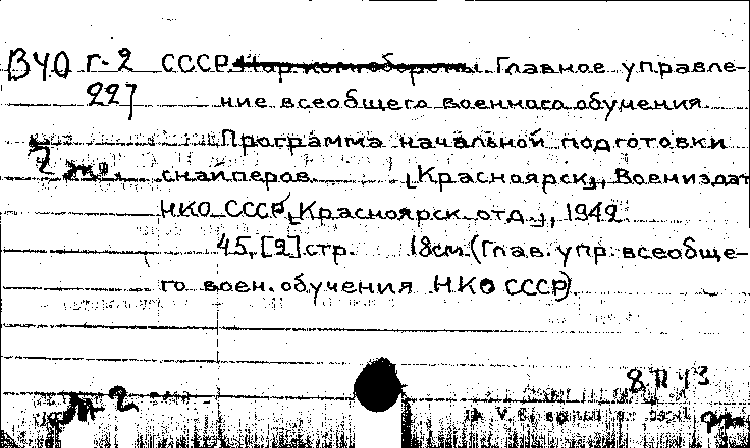 В40 г-2 СССР. Нар. ком. обороны. Главное управле-
227 ние всеобщего военного обучения.
Программа начальной подготовки
2 экз. снайперов. [Красноярск], Воениздат
НКО СССР, [Красноярск. отд.], 1942.
45, [2] стр. 18см. (Глав. упр. всеобще-
го воен. обучения НКО СССР).
8 II 43